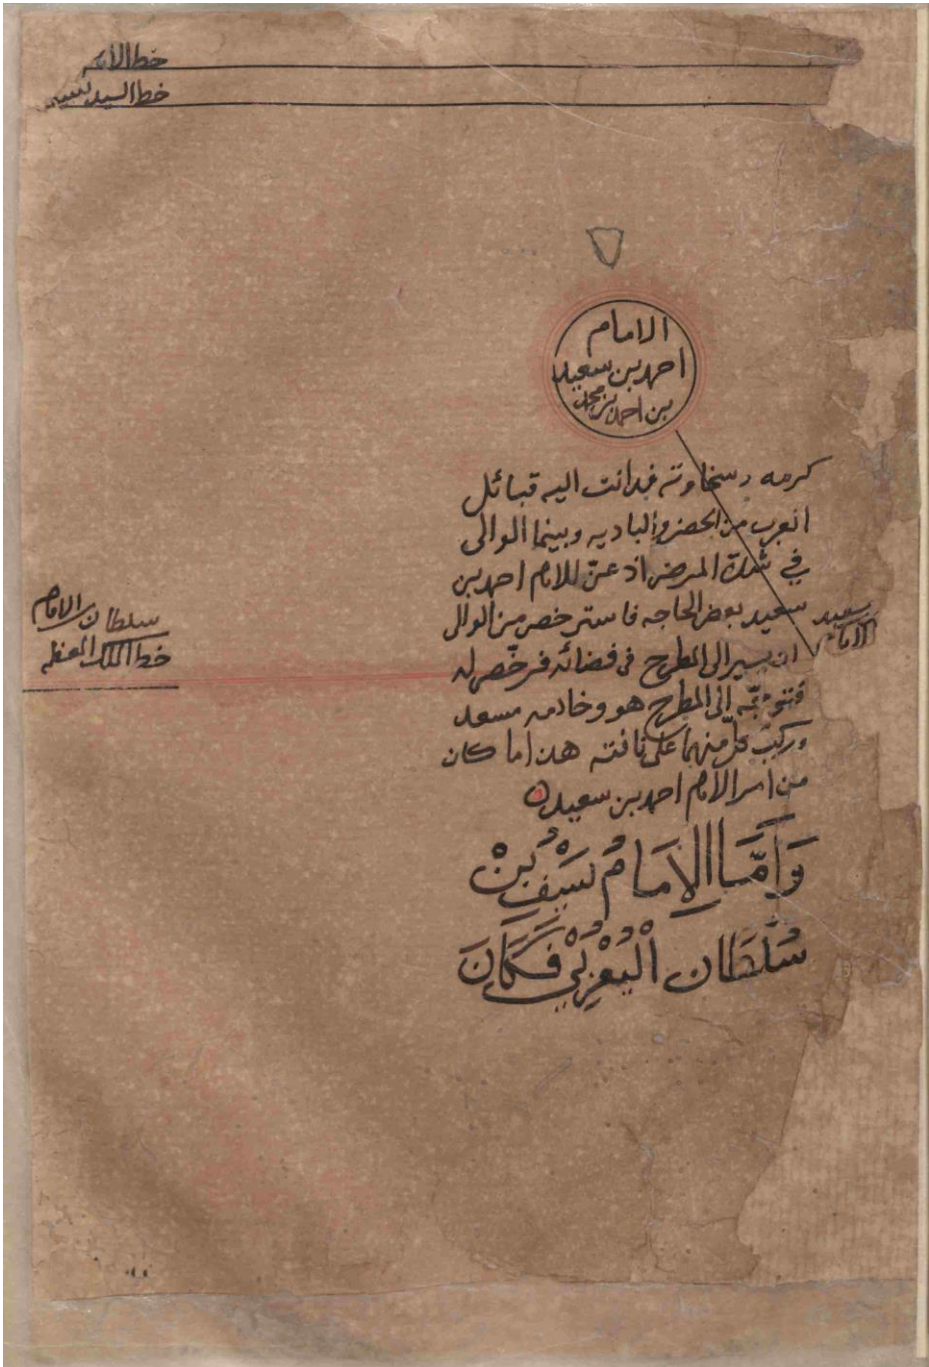 خط الأئمه
خط السيد
الامام
احمد بن سعيد
بن احمد بن محمد
كرمه وسخاوته فدانت اليه قبائل
العرب من الحضر والباديه وبينما الوالى
في شدة المرض اذ عنّ للامام احمد بن
سعيد بعض الحاجه فاسترخص من الوالى
ان يسير الى المطرح فى قضائه فرخّص له
فتوجّه الى المطرح هو وخادمه مسعد
وركب كلّ منهما على ناقته هذا ما كان
من امر الامام احمد بن سعيد
وَأَمَّا الإمَامُ سَيْفُ بْنُ
سُلْطَان الْيَعْرُبْي فَكَانَ
سعيد
الامام
سلطان الامام
خط الملك المعظم